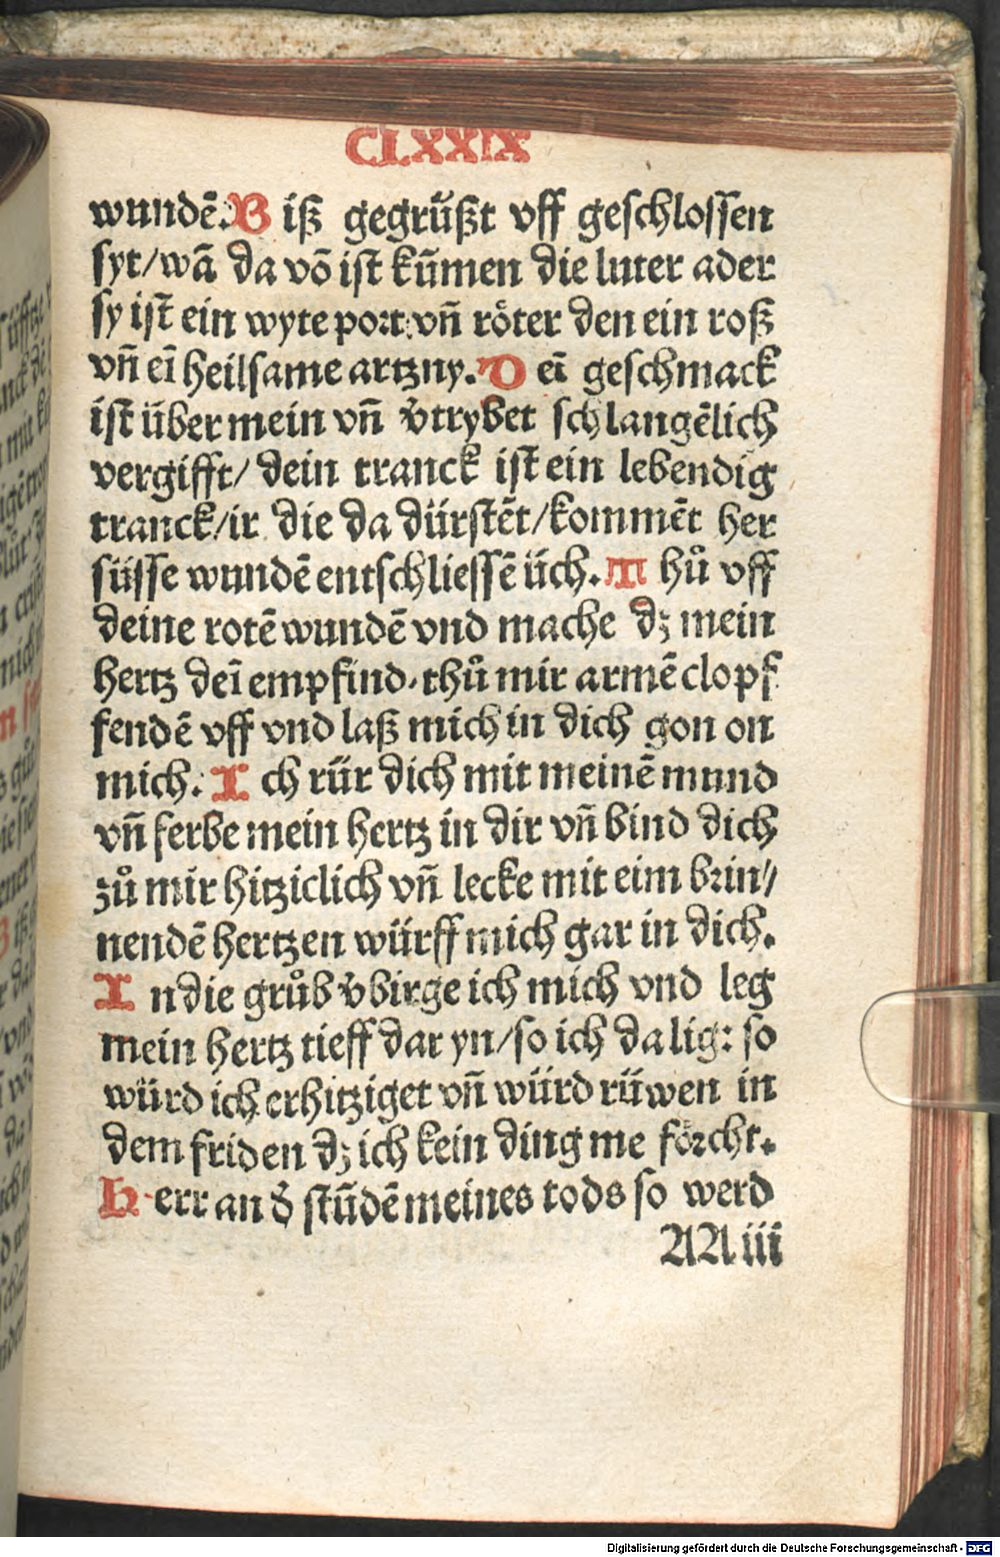 CLXXIX
wundē. Biß gegrüßt vff geschlossen
syt/wā da vō ist kūmen die luter ader
sy ist ein wyte port vn̄ röter den ein roß
vn̄ eī heilsame artzny. Deī geschmack
ist über mein vn̄ v̓trybet schlangēlich
vergifft/dein tranck ist ein lebendig
tranck/ir die da dürstēt/kommēt her
süsse wundē entschliessē üch. Thů vff
deine rotē wundē vnd mache dz mein
hertz deī empfind. thů mir armē clopf
fendē vff vnd laß mich in dich gon on
mich. Ich rür dich mit meinē mund
vn̄ ferbe mein hertz in dir vn̄ bind dich
zů mir hitziclich vn̄ lecke mit eim brin//
nendē hertzen würff mich gar in dich.
In die grůb v̓birge ich mich vnd leg
mein hertz tieff dar yn/so ich da lig: so
würd ich erhitziget vn̄ würd rüwen in
dem friden dz ich kein ding me förcht.
Herr an d̓ stūdē meines tods so werd
AA iii
Digitalisierung gefördert durch die Deutsche Forschungsgemeinschaft - DFG